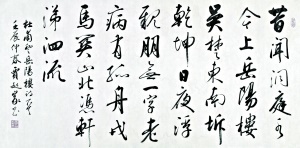 昔闻洞庭水
今上岳阳楼
吴楚东南坼
乾坤日夜浮
亲朋无一字老
病有孤舟戎
马关山北凭轩
涕泗流
杜甫登岳阳楼诗一首